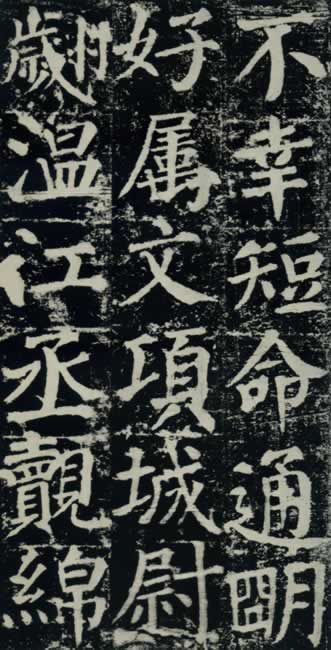 不幸短命通明
好属文項城尉
翽温江丞覿綿